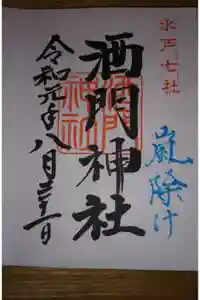 水戸七社
嵐除け
酒門神社
令和元年八月三十一日